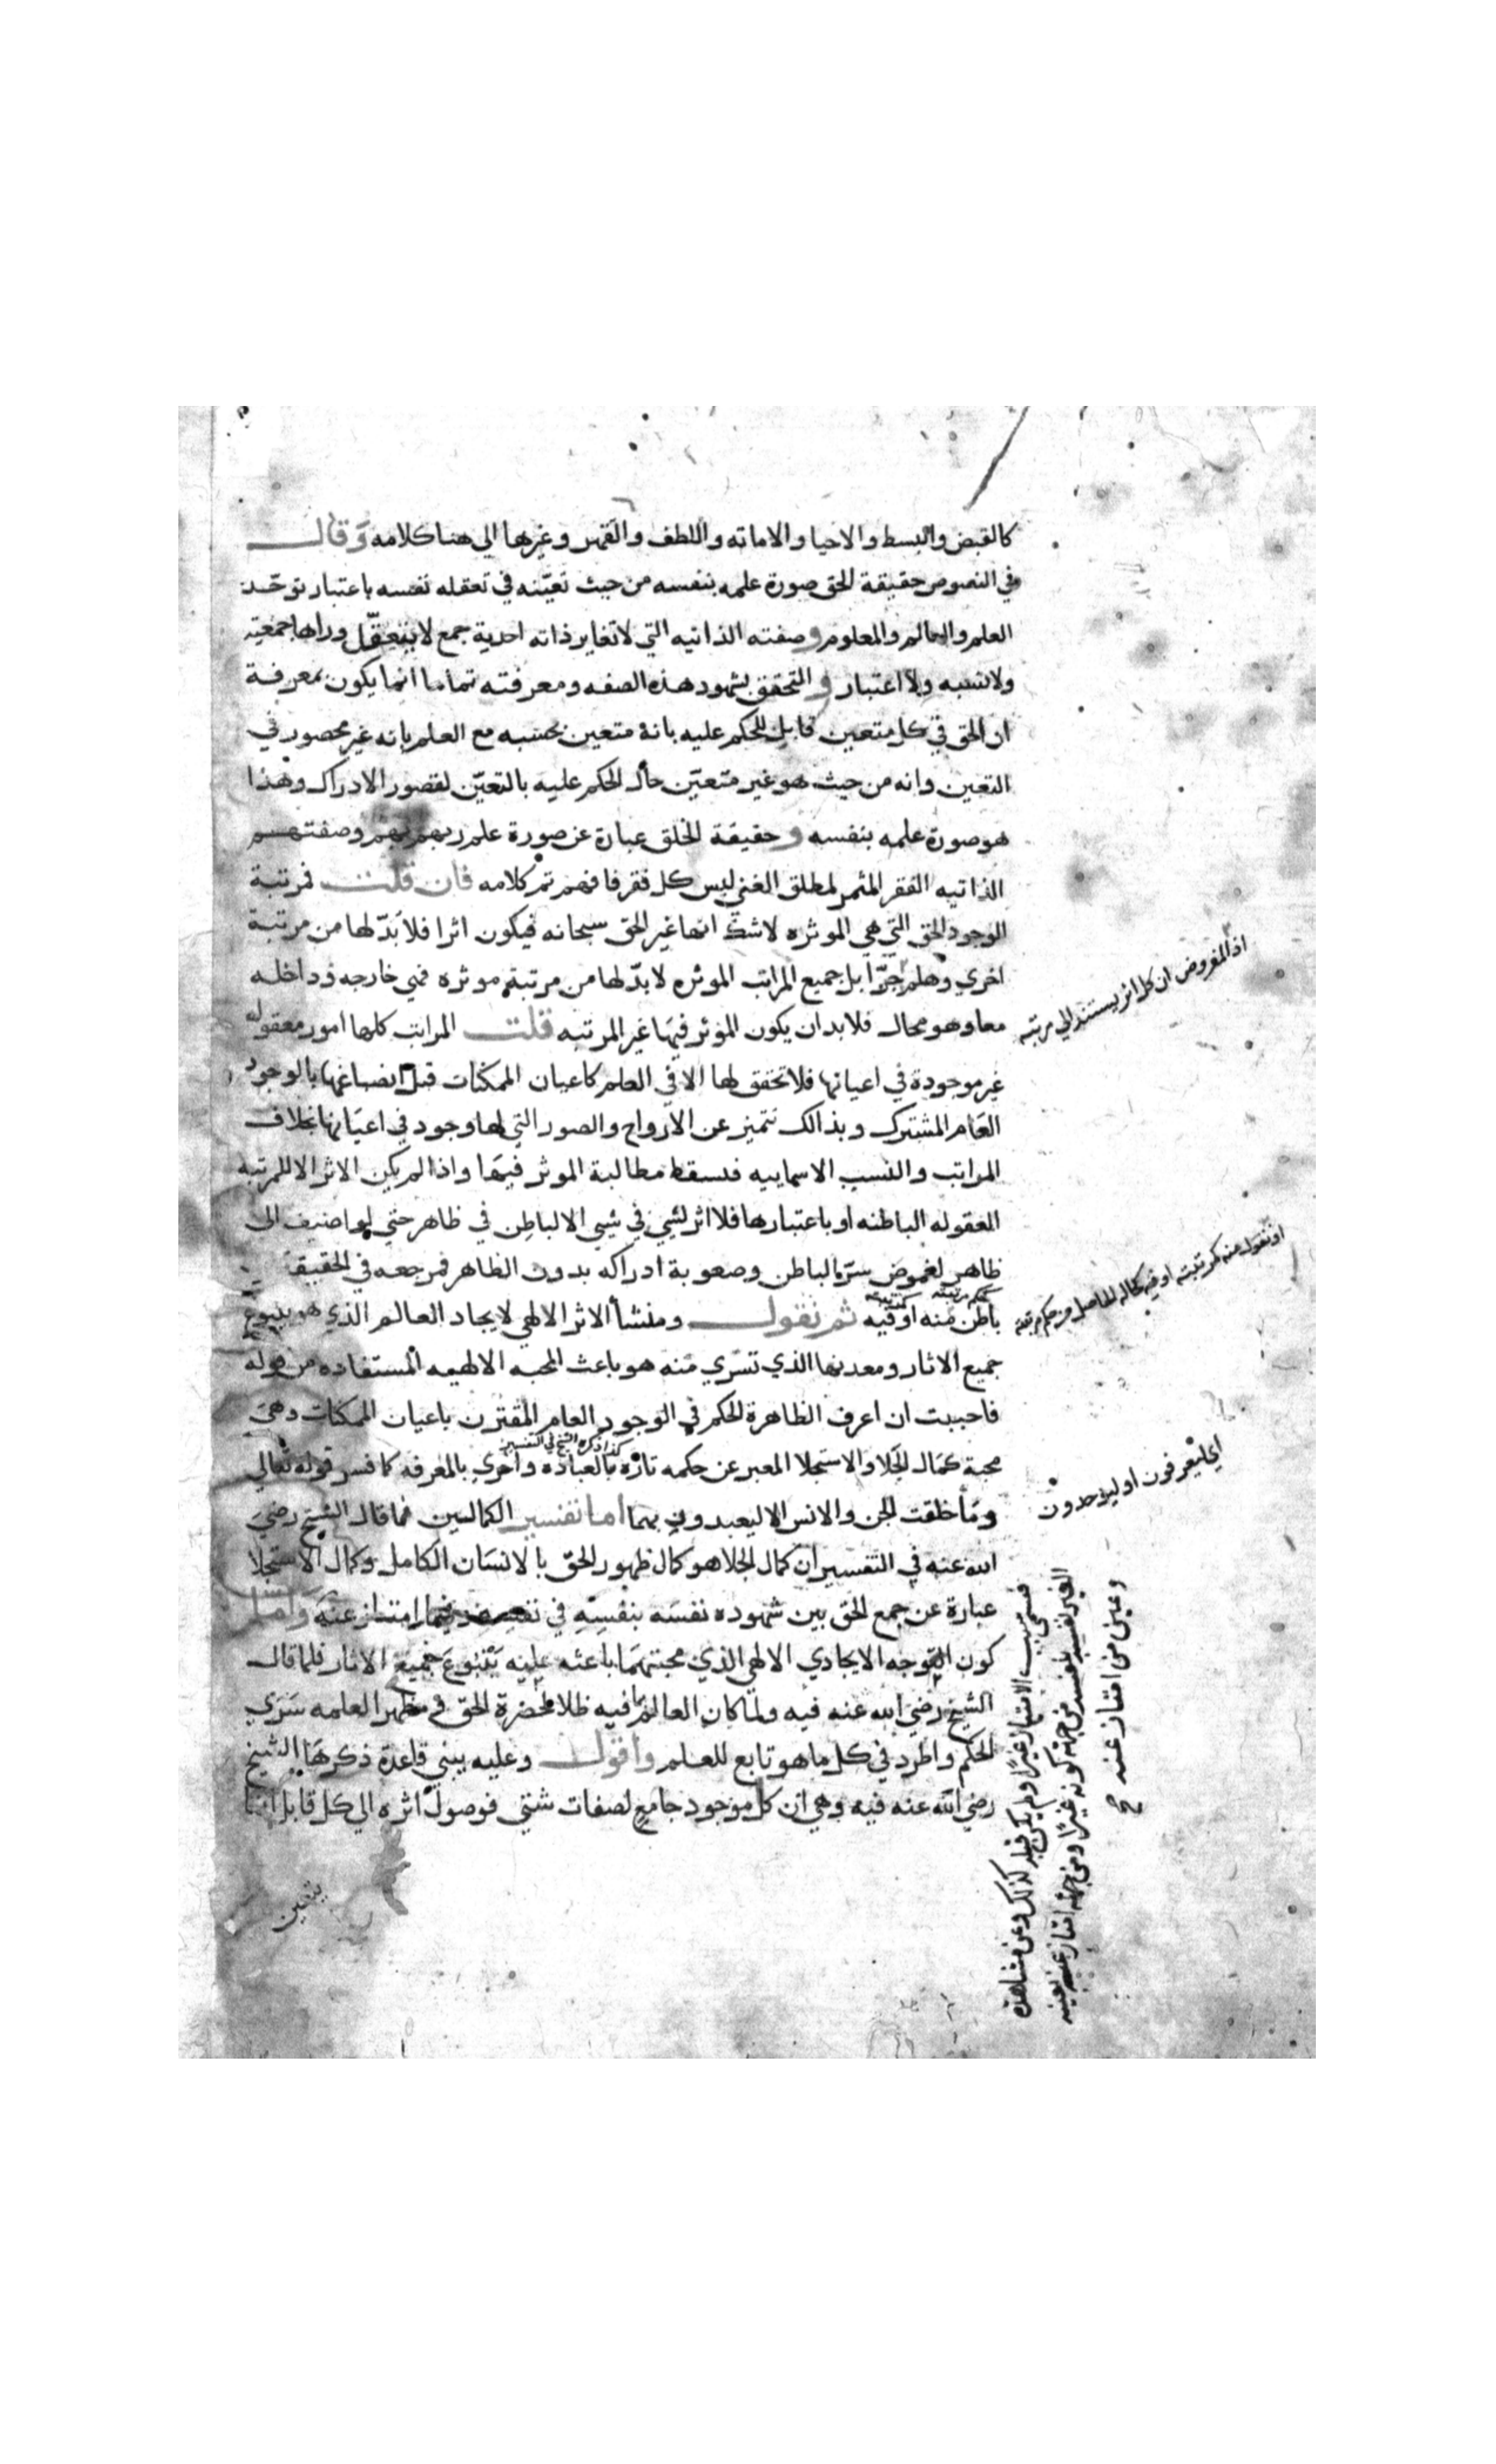 كالقبض والبسط والاحيا والاماته واللطف والقهر وغيرها الي هنا كلامه وقال
في النصوص حقيقة الحق صورة علمه بنفسه من حيث تعينه في تعقله نفسه باعتبار توحد
العلم والعالم والمعلوم وصفته الذاتيه التي لا تغاير ذاته احدية جمع لا يتعقل وراها جمعية
ولا نسبه ولا اعتبار والتحقق بشهود هذه الصفه ومعرفته تماما انما يكون بمعرفة
ان الحق في كل متعين قابل للحكم عليه بانه متعين بحسبه مع العلم بانه غير محصور في
التعين وانه من حيث هو غير متعين حال الحكم عليه بالتعين لقصور الادراك وهذا
هو صورة علمه بنفسه وحقيقة الخلق عبارة عن صورة علم ربهم بهم وصفتهم
الذاتيه الفقر المثمر لمطلق الغني ليس كل فقر فافهم تم كلامه فان قلت فمرتبة
الوجود الحق التي هي الموثره لا شك انها غير الحق سبحانه فيكون اثرا فلا بد لها من مرتبة
اخري وهلم جرا بل جميع المراتب الموثره لا بد لها من مرتبة موثره فهي خارجه وداخله
معا وهو محال فلا بد ان يكون الموثر فيها غير المرتبه قلت المراتب كلها امور معقوله
غير موجودة في اعيانها فلا تحقق لها الا في العلم كاعيان الممكنات قبل انصباغها بالوجود
العام المشترك وبذالك تتميز عن الارواح والصور التي لها وجود في اعيانها بخلاف
المراتب والنسب الاسماييه فسقط مطالبة الموثر فيها واذا لم يكن الاثر الا للمرتبه
المعقوله الباطنه او باعتبارها فلا اثر لشي في شي الا لباطن في ظاهر حتي لو اضيف الى
ظاهر لغموض سره الباطن وصعوبة ادراكه بدون الظاهر فمرجعه في الحقيقة
باطن منه او فيه ثم نقول ومنشأ الاثر الالهي لايجاد العالم الذي هو ينبوع
جميع الاثار ومعدنها الذي تسري منه هو باعث المحبه الالهيه المستفاده من قوله
فاحببت ان اعرف الظاهرة الحكم في الوجود العام المقترن باعيان الممكنات وهي
كذا ذكره الشيخ في التفسير
محبة كمال الجلا والاستجلا المعبر عن حكمه تارة بالعباده واخري بالمعرفه كما فسر قوله تعالي
وما خلقت الجن والانس الا ليعبدون بهما اما تفسير الكمالين فما قال الشيخ رضي
الله عنه في التفسير ان كمال الجلا هو كمال ظهور الحق بالانسان الكامل وكمال الاستجلا
عبارة عن جمع الحق بين شهوده نفسه بنفسه في نفسه فيما امتاز عنه واما
كون التوجه الايجادي الالهي الذي محبتهما باعثه عليه ينبوع جميع الاثار فلما قال
الشيخ رضي الله عنه فيه ولما كان العالم بما فيه ظلا لحضرة الحق في مظهر العلمه سري
الحكم واطرد في كل ما هو تابع للعلم واقول وعليه يبني قاعدة ذكرها الشيخ
رضي الله عنه فيه وهي ان كل موجود جامع لصفات شتي فوصول اثره الي كل قابل انما
يتعين
اذ المفروض ان كل اثر يستند الي مرتبه
اي ليعرفون او ليوحدون
فسمي بسبب الامتياز غيرا ولم يكن قبل كذلك وعن مشاهدة
الغير نفسه بنفسه من جهة كونه غيرا ومن جهة امتاز عنه بعينه
وعين من امتاز عنه